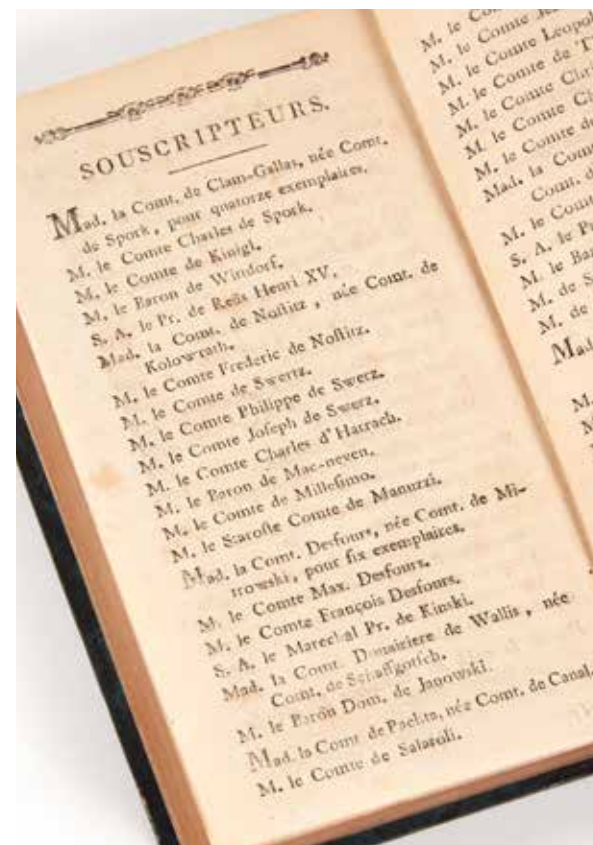 SOUSCRIPTEURS.
Mad. la Comt. de Clam-Gallas, née Comt.
de Spork, pour quatorze exemplaires.
M. le Comte Charles de Spork.
M. le Comte de Kinigl.
M. le Baron de Windorf.
S. A. le Pr. de Reüs Henri XV.
Mad. la Comt. de Noſtitz, née Comt. de
Kolowrath.
M. le Comte Frederic de Noſtitz.
M. le Comte de Swertz.
M. le Comte Philippe de Swerz.
M. le Comte Joſeph de Swerz.
M. le Comte Charles d'Harrach.
M. le Baron de Mac-neven.
M. le Comte de Milleſimo.
M. le Staroſte Comte de Manuzzi.
Mad. la Comt. Desfours, née Comt. de Mi-
trowski, pour ſix exemplaires.
M. le Comte Max. Desfours.
M. le Comte François Desfours.
S. A. le Marechal Pr. de Kinski.
Mad. la Comt. Douairiere de Wallis, née
Comt. de Schaffgotſch.
M. le Baron Dom. de Janowski.
Mad. la Comt. de Pachta, née Comt. de Canal.
M. le Comte de Salaroli.
M. le
M. le Comte
M. le Comte Leopol
M. le Comte de T
M. le Comte Chri
M. le Comte
M. le Comte de
Mad. la Com
Comt. d
M. le Comt
S. A. le Pr
M. le Ba
M. de S
M. de
Mad
M.